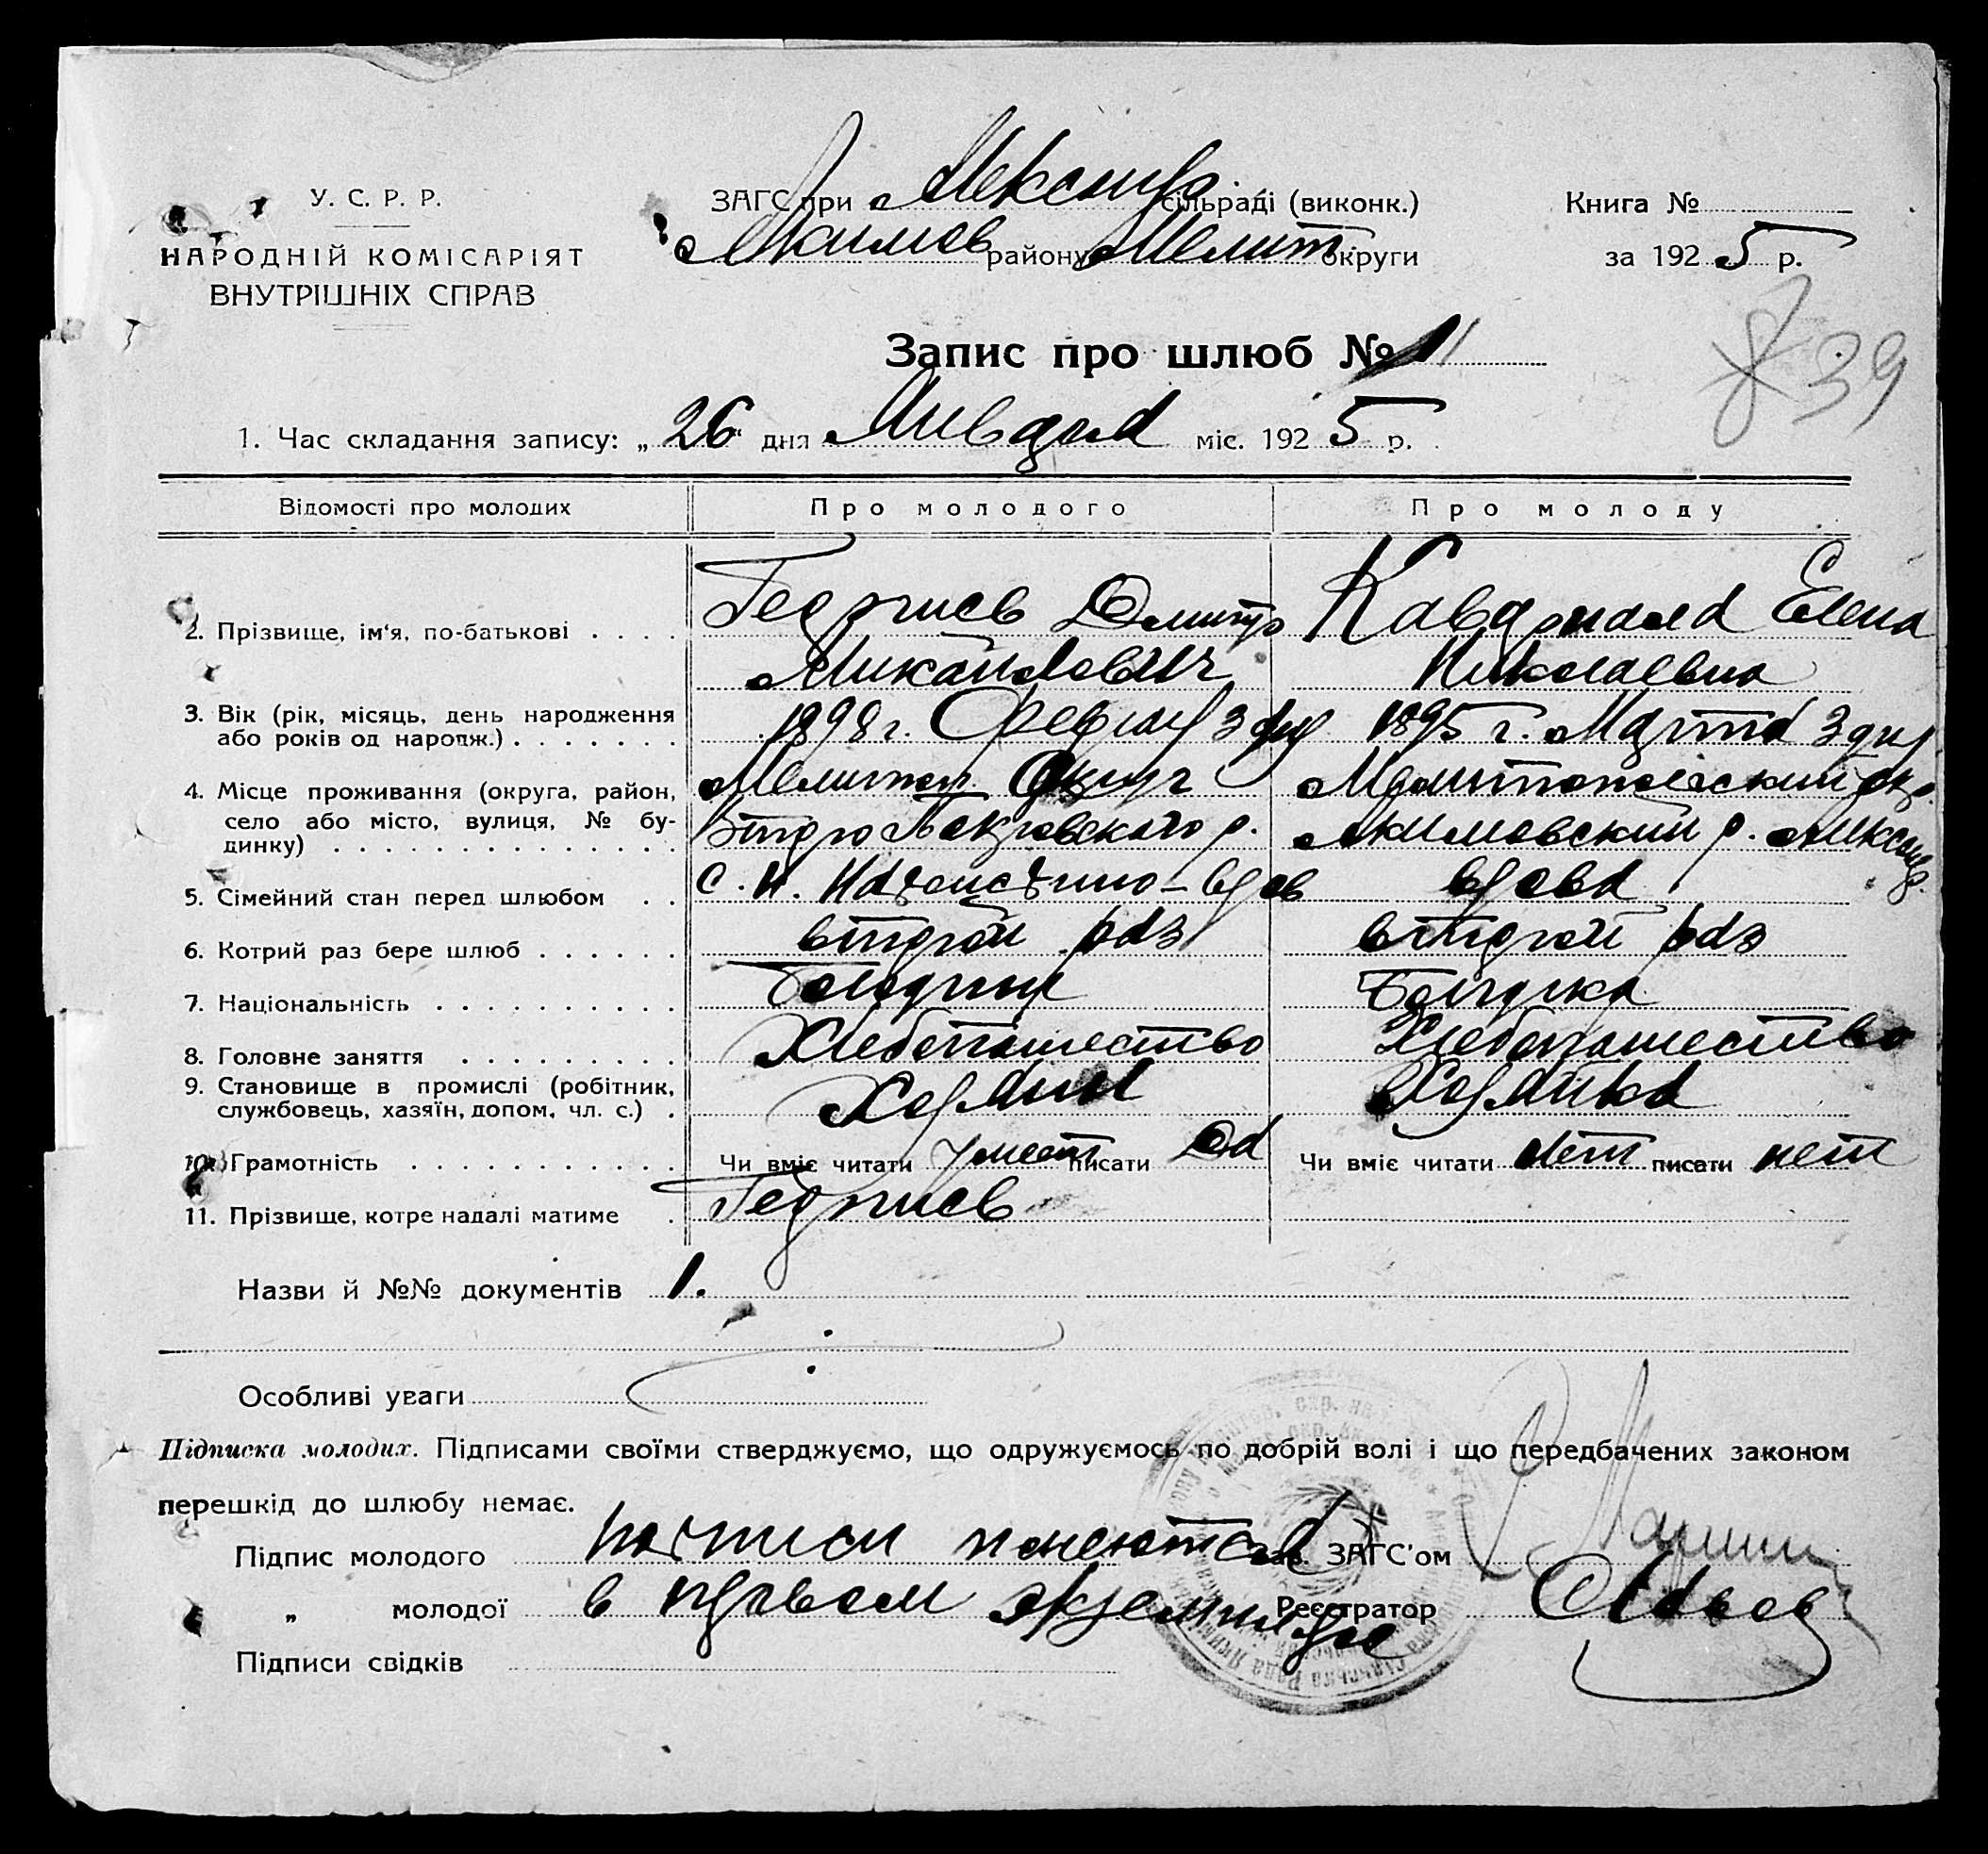 У. С. Р. Р.
НАРОДНІЙ КОМІСАРІЯТ
ВНУТРІШНІХ СПРАВ
ЗАГС при Александр. сільраді (виконк.)
Акимов району Мелит округи
Книга №
за 1925 р.
Запис про шлюб № 11
39
1. Час складання запису: „26“ дня Января міс. 1925 р.
Відомості про молодих Про молодого Про молоду
2. Прізвище, ім‘я, по-батькові Георгиев Дмитр Кавар Елена
Михайлович Николаевна
3. Вік (рік, місяць, день народження або років од нарoдж.) 1898 г. Феврал 3 дня 1895 г. Марта 3 дня
4. Місце проживання (округа, район, село або місто, вулиця, № будинку) Мелитоп Округ Мелитопольский окр.
Второ Покровского р. Акимовский р. Александр.
5. Сімейний стан перед шлюбом с. вдов вдова
6. Котрий раз бере шлюб второй раз второй раз
7. Національність Болгарин Болгарка
8. Головне заняття Хлебопашество Хлебопашество
9. Становище в промислі (робітник, службовець, хазяїн, допом. чл. с.) Хозяин Хозяйка
10. Грамотність Чи вміє читати умеет писати Да Чи вміє читати нет писати нет
11. Прізвище, котре надалі матиме Георгиев
Назви й №№ документів 1.
Особливі уваги
Підписка молодих. Підписами своїми стверджуємо, що одружуємось по добрій волі і що передбачених законом
перешкід до шлюбу немає.
Підпис молодого подписи имеются Зав. ЗАГС'ом
„ молодої в первом экземпляре Реєстратор
Підписи свідків